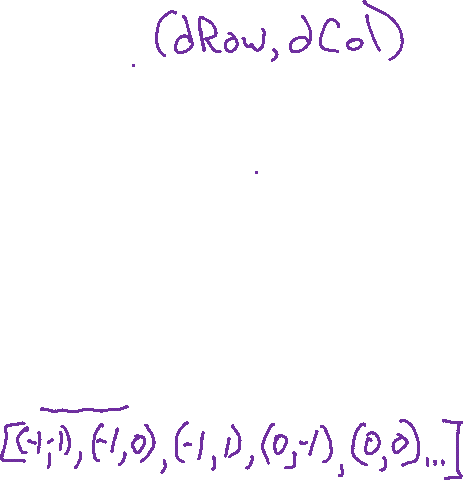 (dRow, dCol)
[(-1,-1), (-1,0), (-1,1), (0,-1), (0,0)...]